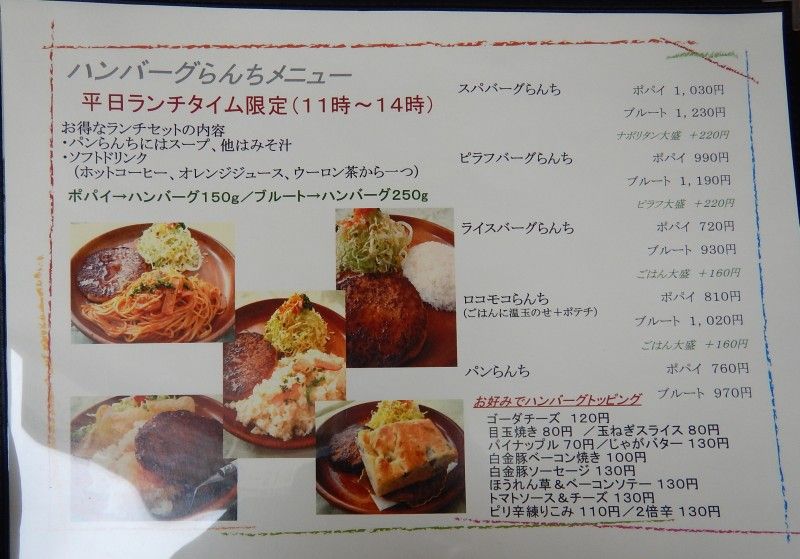 ハンバーグらんちメニュー
平日ランチタイム限定（11時～14時）
お得なランチセットの内容
・パンらんちにはスープ、他はみそ汁
・ソフトドリンク
（ホットコーヒー、オレンジジュース、ウーロン茶から一つ）
ポパイ→ハンバーグ150g／ブルート→ハンバーグ250g
スパバーグらんち ポパイ 1,030円
ブルート 1,230円
ナポリタン大盛 +220円
ピラフバーグらんち ポパイ 990円
ブルート 1,190円
ピラフ大盛 +220円
ライスバーグらんち ポパイ 720円
ブルート 930円
ごはん大盛 +160円
ロコモコらんち ポパイ 810円
（ごはんに温玉のせ＋ポテチ）
ブルート 1,020円
ごはん大盛 +160円
パンらんち ポパイ 760円
ブルート 970円
お好みでハンバーグトッピング
ゴーダチーズ 120円
目玉焼き 80円 ／玉ねぎスライス 80円
パイナップル 70円／じゃがバター 130円
白金豚ベーコン焼き 100円
白金豚ソーセージ 130円
ほうれん草＆ベーコンソテー 130円
トマトソース＆チーズ 130円
ピリ辛練りこみ 110円／2倍辛 130円